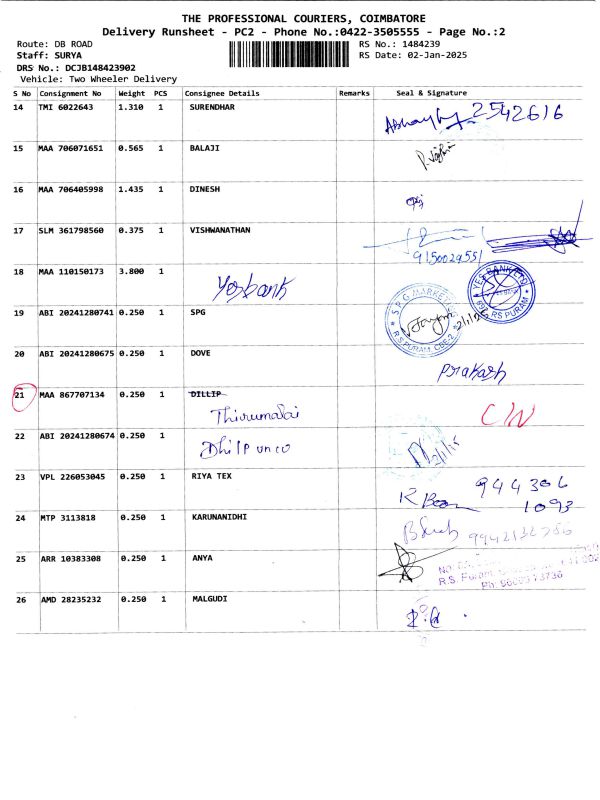 THE PROFESSIONAL COURIERS, COIMBATORE
Delivery Runsheet - PC2 - Phone No.:0422-3505555 - Page No.:2
Route: DB ROAD RS No.: 1484239
Staff: SURYA RS Date: 02-Jan-2025
DRS No.: DCJB148423902
Vehicle: Two Wheeler Delivery
S No Consignment No Weight PCS Consignee Details Remarks Seal & Signature
14 TMI 6022643 1.310 1 SURENDHAR
2542616
15 MAA 706071651 0.565 1 BALAJI
16 MAA 706405998 1.435 1 DINESH
17 SLM 361798560 0.375 1 VISHWANATHAN
9150029551
18 MAA 110150173 3.800 1 Yesbank
YES BANK LTD RS PURAM
19 ABI 20241280741 0.250 1 SPG
S.P.G MARKET
R.S.PURAM, CBE-2
2/1/25
20 ABI 20241280675 0.250 1 DOVE
Prakash
21 MAA 867707134 0.250 1 DILLIP
Thirumalai C/N
22 ABI 20241280674 0.250 1 Dhilp unco
2/1/25
23 VPL 226053045 0.250 1 RIYA TEX
944306
1093
24 MTP 3113818 0.250 1 KARUNANIDHI
25 ARR 10383308 0.250 1 ANYA
R.S. Puram
26 AMD 28235232 0.250 1 MALGUDI